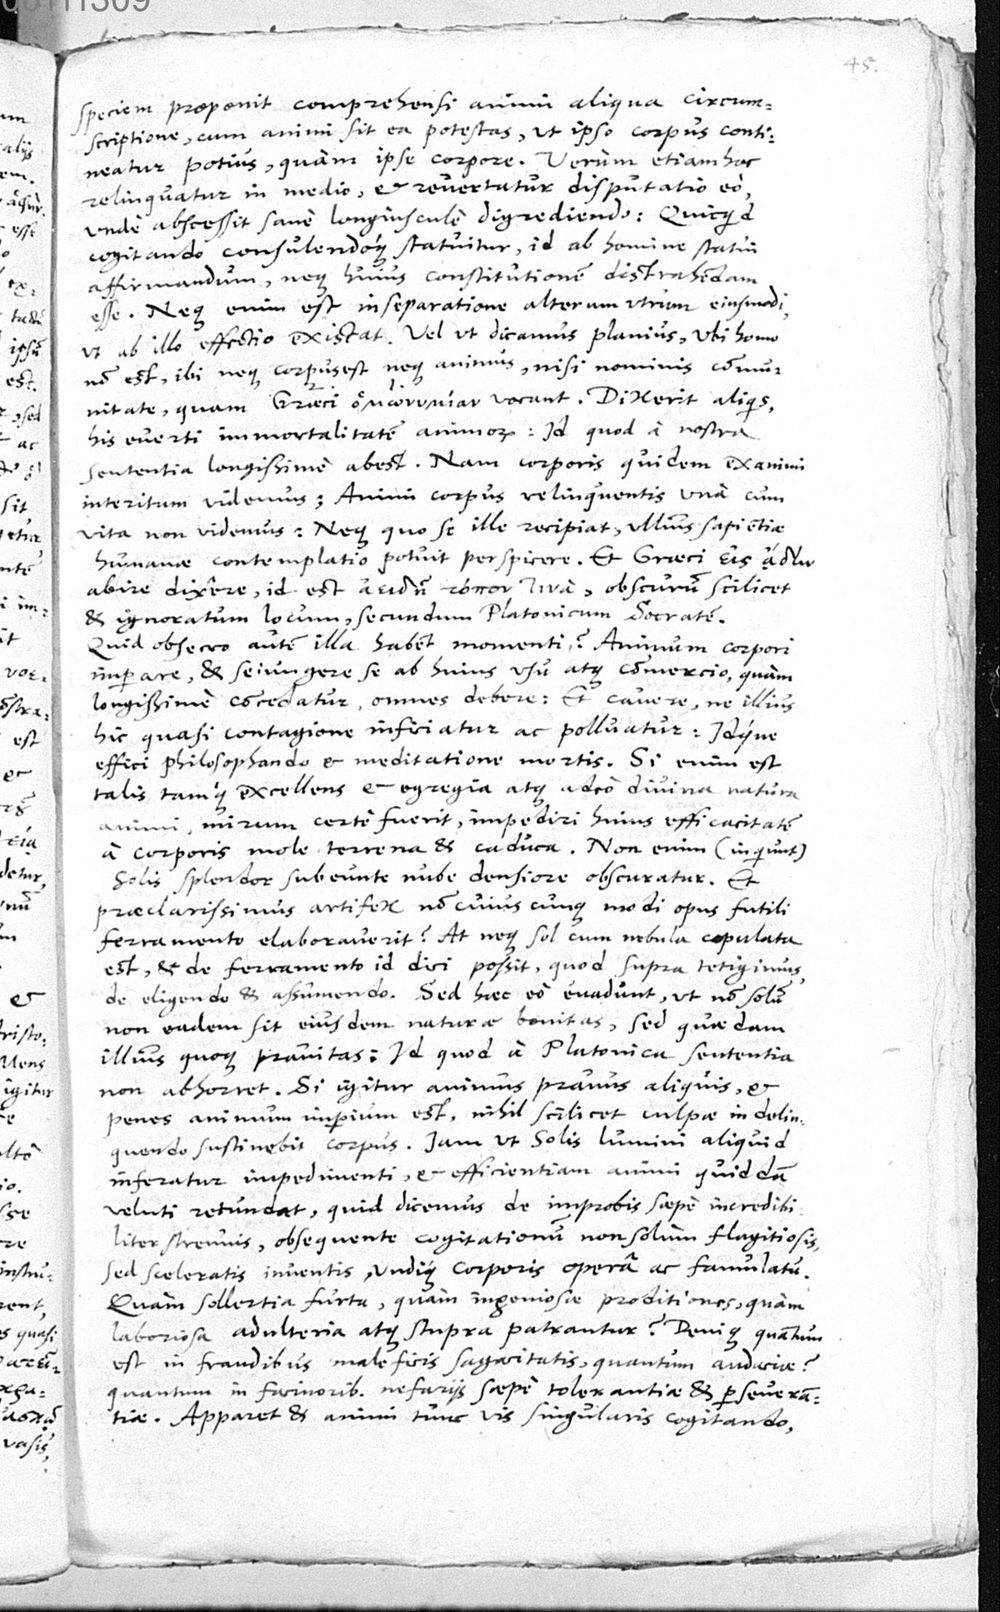 45.
speciem proponit comprehensi animi aliqua circum=
scriptione, cum animi sit ea potestas, ut ipso corpus conti=
neatur potius, quàm ipse corpore. Verùm etiam hoc
relinquatur in medio, & revertatur disputatio eò,
undè abscessit sanè longiusculè digrediendo: Quicq̃d
cogitando consulendoq́ꝫ statuitur, id ab homine statui
affirmandum, neqꝫ huius constitutionẽ distrahẽdam
esse. Neqꝫ enim est in separatione alterum utrum eiusmodi,
ut ab illo effectio existat. Vel ut dicamus planius, Ubi homo
nõ est, ibi neqꝫ corpus est neqꝫ animus, nisi nominis cõmu=
nitate, quam Græci ὁμωνυμίαν vocant. Dixerit aliq̃s,
his everti immortalitatẽ animoꝝ: Id quod à nostra
sententia longissimè abest. Nam corporis quidem exanimi
interitum videmus; Animi corpus relinquentis unà cum
vita non videmus: Neqꝫ quo se ille recipiat, ullius sapiẽtiæ
humanæ contemplatio potuit perspicere. Et Græci εἰς ᾅδου
abire dixêre, id est ἀειδῆ τόπον τινὰ, obscurũ scilicet
& ignoratum locum, secundum Platonicum Socratẽ.
Quid obsecro autẽ illa habẽt momenti? Animum corpori
imꝑare, & seiungere se ab huius usu atqꝫ cõmercio, quàm
longissimè cõcedatur, omnes debere: Et cavere, ne illius
hic quasi contagione inficiatur ac polluatur: Idq́ue
effici philosophando & meditatione mortis. Si enim est
talis tamq́ꝫ excellens & egregia atqꝫ adeò divina natura
animi, mirum certè fuerit, impediri huius efficacitatẽ
à corporis mole terrena & caduca. Non enim (inquiunt)
Solis splendor subeunte nube densiore obscuratur. Et
præclarissimus artifex nõ cuiuscunqꝫ modi opus futili
ferramento elaboraverit? At neqꝫ sol cum nebula copulata
est, & de ferramento id dici possit, quod supra tetigimus,
de eligendo & assumendo. Sed hæc eò evadunt, ut nõ solũ
non eadem sit eiusdem naturæ bonitas, sed quædam
illius quoqꝫ pravitas: Id quod à Platonica sententia
non abhorret. Si igitur animus pravus aliquis, &
penes animum imꝑium est, nihil scilicet culpæ in delin=
quendo sustinebit corpus. Iam ut Solis lumini aliquid
inferatur impedimenti, & efficientiam animi quiddã
veluti retundat, quid dicemus de improbis sæpè incredibi=
liter strenuis, obsequente cogitationũ non solùm flagitiosis,
sed sceleratis inventis, undiqꝫ corporis operâ ac famulatu.
Quàm sollertia furta, quàm ingeniosæ proditiones, quàm
laboriosa adulteria atqꝫ stupra patrantur? Deniqꝫ quãtum
est in fraudibus maleficis sagacitatis, quantum audaciæ?
quantum in facinorib. nefarijs sæpè tolerantiæ & ꝑseverã=
tiæ. Apparet & animi tunc vis singularis cogitando,